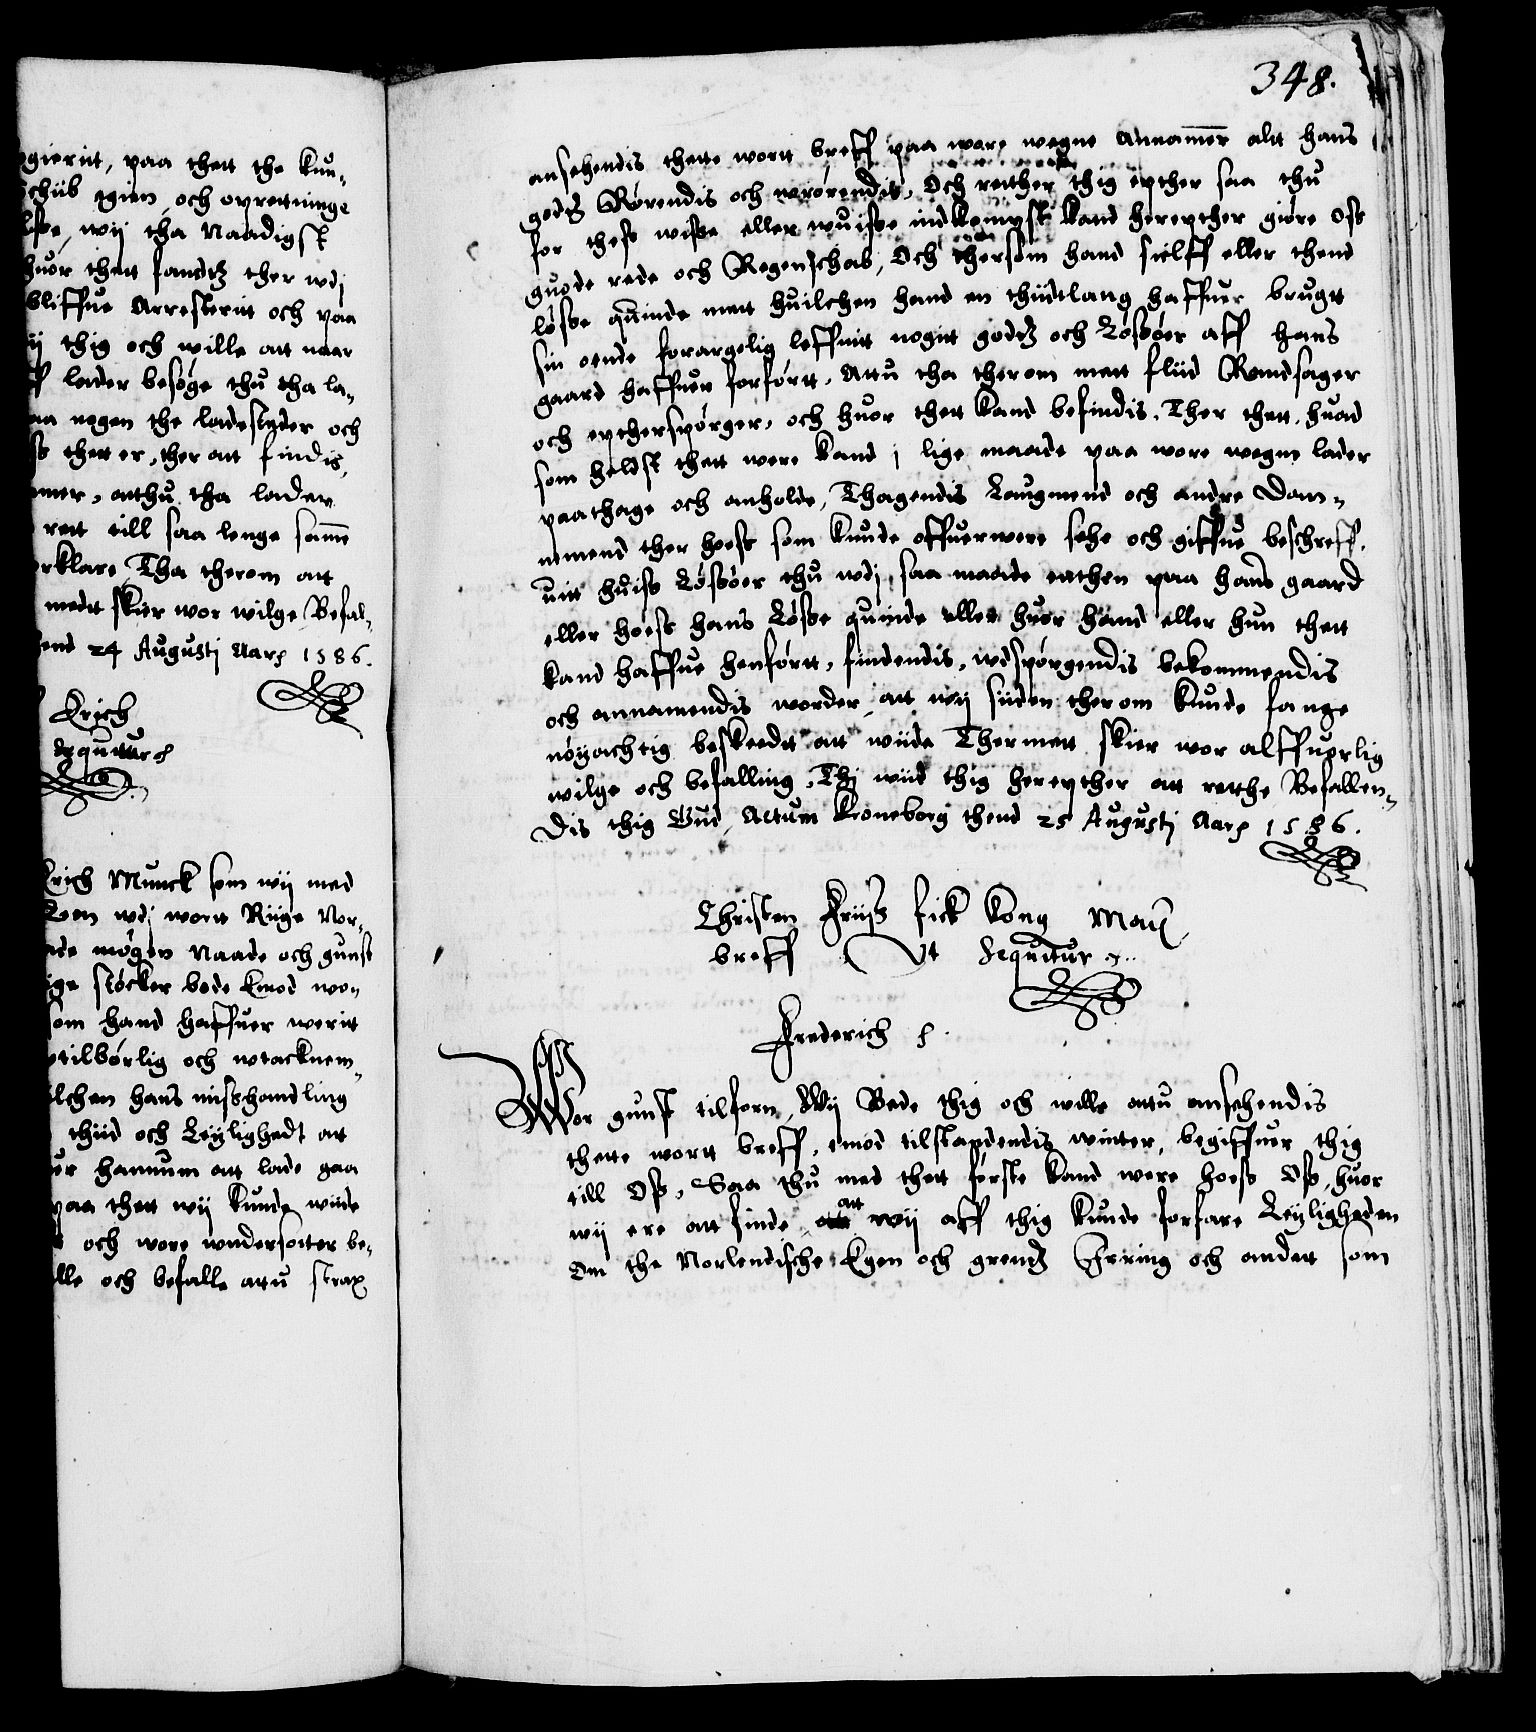 ggierit, paa thett the kun-
schiib igien och oprettninge
liste, wij tha Naadigst
huor thett fandz ther wdj
bliffue Arresterit och paa
ij thig och wille att naar
ff lader besøge thu tha la-
aa nogen the ladesteder och
ss thett er, ther att findis,
amer, atthu tha lader
rett till saa lenge samme
erklare, Tha therom att
medt skier wor wilge, Befal-
end 24 Augustj Aar 1586.
Erich
sequitur
Erich Munck som wij med
Leen wdj wortt Riige Nor-
ede møgen Naade och gunst
ige støcker bode Emod wo-
som hand haffuer werit
wtilbørlig och wtacknem-
ilchen hans misshandling
thiid och Leiylighedt att
uer hannum att lade gaa
paa thett wij kunde wiide
och wore wndersotter be-
lle och befalle attu strax
348.
ansehendis thette wortt breff paa wore wegne Annammer alt hans
godz Rørendis och wrørendis, Och retther thig epther saa thu
for thess wisse eller wuisse indkompst kand herepther giøre Oss
guode rede och Regenschab, Och thersom hand sielff eller thend
løsse quinde mett huilchen hand en thiidtlang haffuer brugtt
sin onde forargelig leffnit nogit godz och Løsøer aff hans
gaard haffuer forførtt, Attu tha therom mett fliid Randsager
och eptherspørger, och huor thett kand befindis, Ther thett, huad
som heldst thett were kand j lige maade paa wore wegne lader
paathage och anholde, Thagendis Laugmend och andre Dan-
nemend ther hoess som kunde offuerwere sehe och giffue beschreff-
uitt huiss Løsøer thu wdj saa maade enthen paa hans gaard
eller hoess hans Løsse quinde eller huor hand eller hun thett
kand haffue henførtt, findendis, wdspørgendis bekommendis
och annamendis worder, att wij siiden therom kunde fange
nøyachtig beskeedt att wiide Thermett skier wor alffuerlig
wilge och befalling, Thj wiid thig herepther att retthe Befallen-
Dis thig Gud, Actum Kroneborg thend 25 Augustj Aar 1586.
Christen Friiss fick Kong Matz
breff Vt Sequitur
Frederich
Wor gunst tilforn, Wij Bede thig och wille attu ansehendis
thette wortt breff, emod tilstandendis winter, begiffuer thig
till Oss, Saa thu med thett første kand were hoess Oss, huor
wij ere att finde att wij aff thig kunde forfare Leiyligheden
Om the Norlendische Egen och grendz Irring och andett som